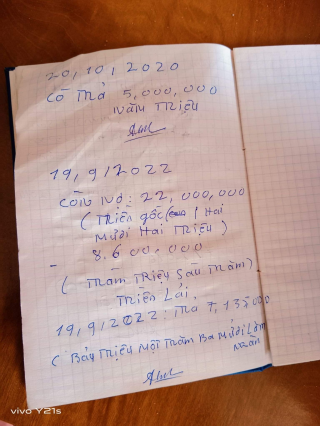 20,10,2020
Cô Trả 5,000,000
năm Triệu
19,9/2022
Còn nợ: 22,000,000
(Triền gốc / Hai
mươi Hai Triệu)
- 8.600.000
(Trám Triệu Sáu Trăm)
Triền Lái
19,9/2022: Trả 7,135,000
(Bảy Triệu Một Trăm Ba Mươi Lăm
vivo Y21s